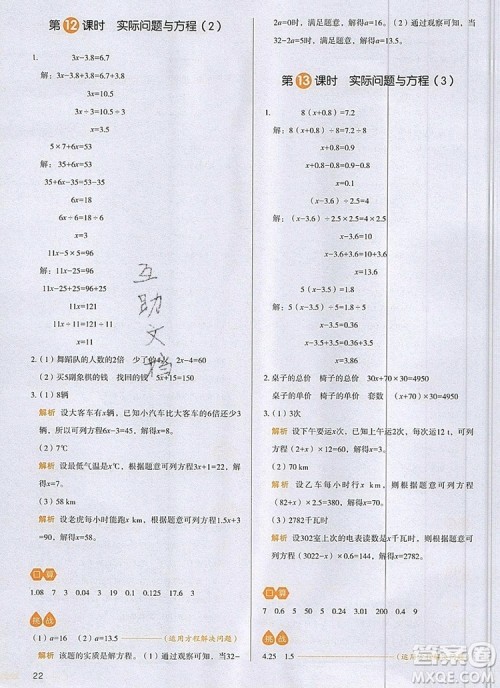 第12课时 实际问题与方程（2）
1. 3x-3.8=6.7
解：3x-3.8+3.8=6.7+3.8
3x=10.5
3x÷3=10.5÷3
x=3.5
5×7+6x=53
解：35+6x=53
35+6x-35=53-35
6x=18
6x÷6=18÷6
x=3
11x-5×5=96
解：11x-25=96
11x-25+25=96+25
11x=121
11x÷11=121÷11
x=11
2.（1）舞蹈队的人数的2倍 少了的4人 2x-4=60
（2）买5副象棋的钱 找回的钱 5x+15=150
3.（1）8辆
解析 设大客车有x辆，已知小汽车比大客车的6倍少3辆，可列方程6x-3=45，解得x=8。
（2）7℃
解析 设最低气温是x℃，根据题意可列方程3x+1=22，解得x=7。
（3）58 km
解析 设老虎每小时能跑x km，根据题意可列方程1.5x+23=110，解得x=58。
口算
1.08 7 3 0.04 19 0.1 0.49 0.125 17.6 3
挑战
（1）a=16 （2）a=13.5 （运用方程解决问题）
解析 该题的实质是解方程。（1）通过观察可知，当32-
22
2a=0时，满足题意，解得a=16。（2）通过观察可知，当32-2a=5时，满足题意，解得a=13.5。
第13课时 实际问题与方程（3）
1. 8（x+0.8）=7.2
解：8（x+0.8）÷8=7.2÷8
x+0.8=0.9
x+0.8-0.8=0.9-0.8
x=0.1
（x-3.6）÷2.5=4
解：（x-3.6）÷2.5×2.5=4×2.5
x-3.6=10
x-3.6+3.6=10+3.6
x=13.6
（x-1.5）×5=1.8
解：（x-1.5）×5÷5=1.8÷5
x-1.5=0.36
x-1.5+1.5=0.36+1.5
x=1.86
2. 桌子的总价 椅子的总价 30x+70×30=4950
桌子的单价 椅子的单价 套数 （x+70）×30=4950
3.（1）3次
解析 设下午要运x次，则根据题意可列方程（27+x）×12=360，解得x=3。
（2）70 km
解析 设乙车每小时行x km，则根据题意可列方程（82+x）×2.5=380，解得x=70。
（3）2782千瓦时
解析 设302室上次的电表读数是x千瓦时，根据题意可列方程（3092-x）×0.6=144，解得x=2782。
口算
7 0.6 5 50 4 0.3 0.01 4.9 0.5 20
挑战
4.25 1.5
互助文档
MXQE.COM